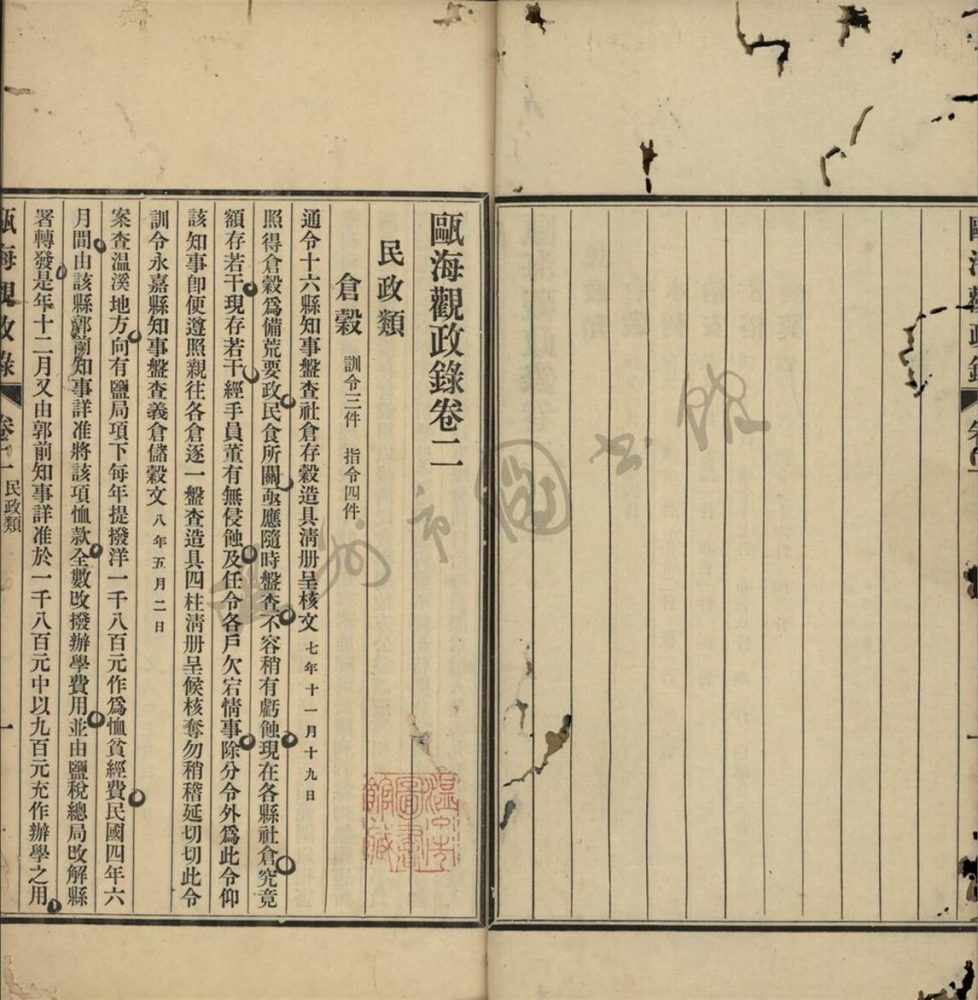 甌海觀政錄卷二
民政類
倉穀 訓令三件 指令四件
通令十六縣知事盤查社倉存穀造具淸册呈核文 七年十一月十九日
照得倉穀爲備荒要政民食所關亟應隨時盤查不容稍有虧蝕現在各縣社倉究竟
額存若干現存若干經手員董有無侵蝕及任令各戶欠宕情事除分令外爲此令仰
該知事卽便遵照親往各倉逐一盤查造具四柱淸册呈候核奪勿稍稽延切切此令
訓令永嘉縣知事盤查義倉儲穀文 八年五月二日
案查温溪地方向有鹽局項下每年提撥洋一千八百元作爲恤貧經費民國四年六
月間由該縣郭前知事詳准將該項恤款全數改撥辦學費用並由鹽稅總局改解縣
署轉發是年十二月又由郭前知事詳准於一千八百元中以九百元充作辦學之用
甌海觀政錄 卷二 民政類 一
溫州市圖書館
溫州市圖書館藏